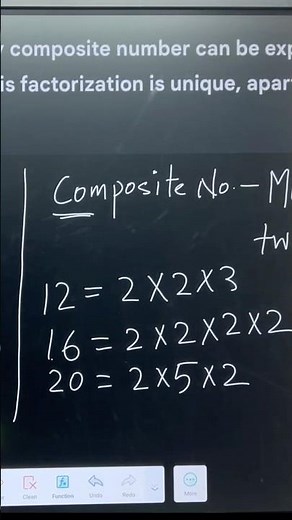 composite number can be exp
is factorization is unique, apar
Composite No.- M
tw
12 = 2 X 2 X 3
16 = 2 X 2 X 2 X 2
20 = 2 X 5 X 2
Clean Function Undo Redo More